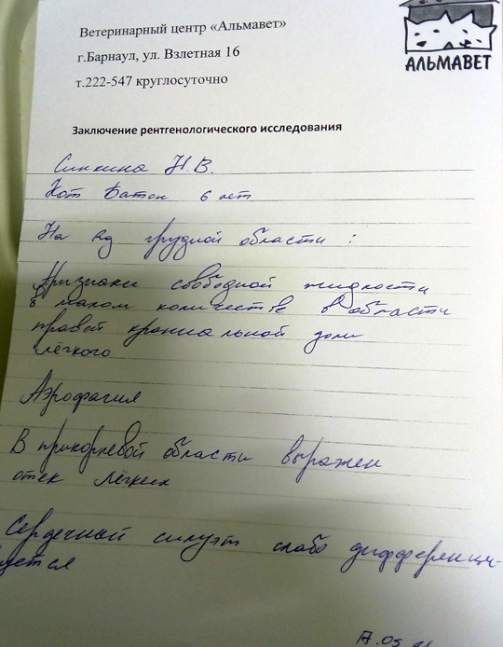 Ветеринарный центр «Альмавет»
г.Барнаул, ул. Взлетная 16
т.222-547 круглосуточно
АЛЬМАВЕТ
Заключение рентгенологического исследования
Синкина Н В.
Кот Батон 6 лет
На Rg грудной области :
Признаки свободной жидкости
в малом количестве в области
правой краниальной доли
лёгкого
Аэрофагия
В прикорневой области выражен
отек лёгких
Сердечный силуэт слабо дифференци-
уется